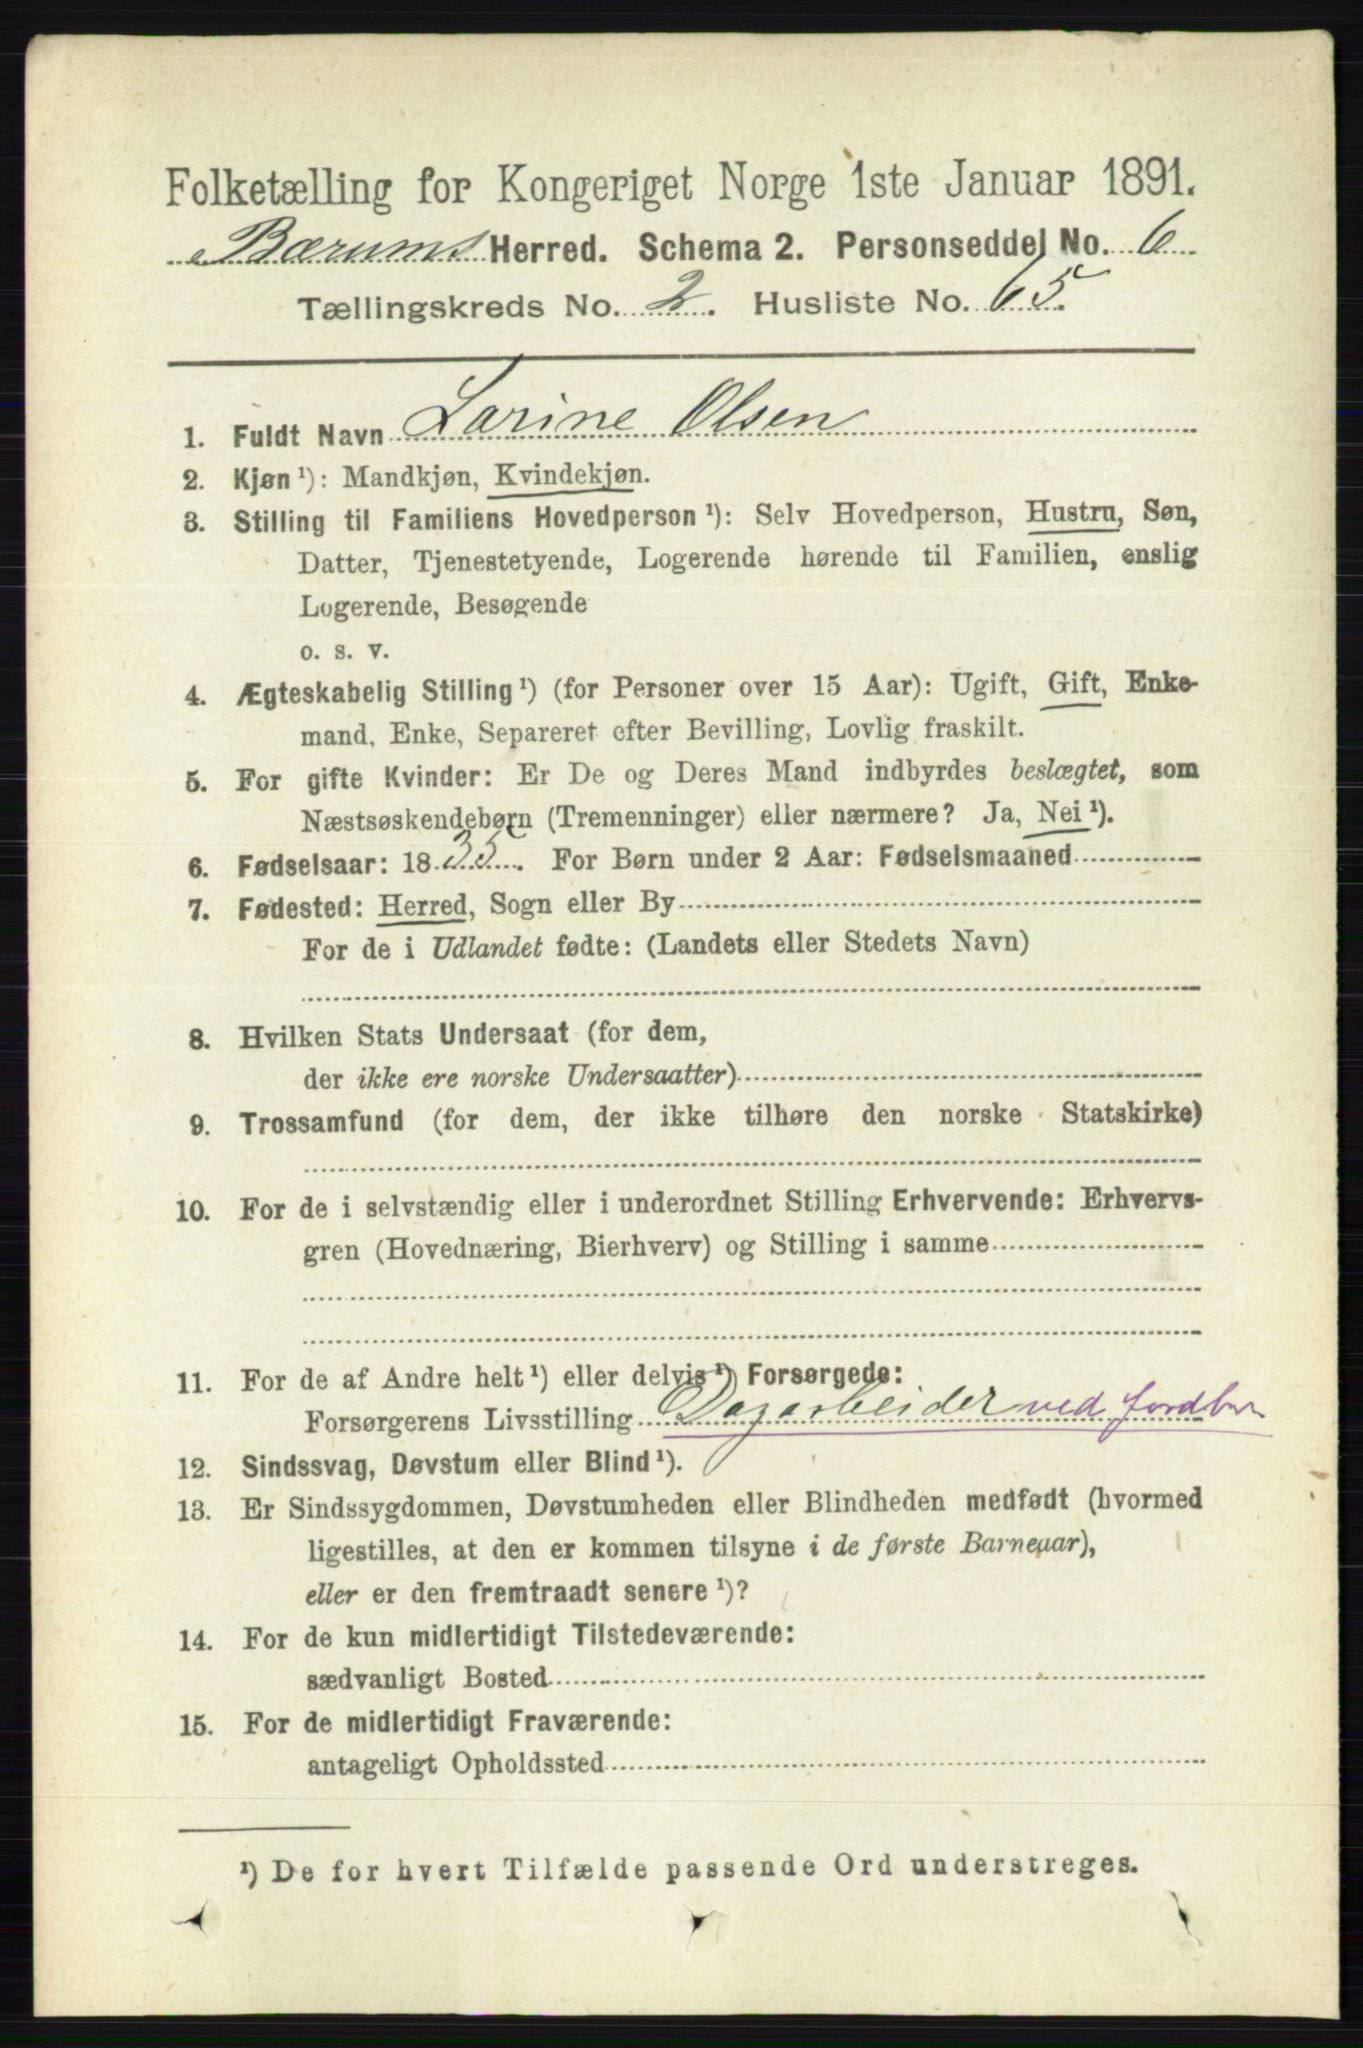 Folketælling for Kongeriget Norge 1ste Januar 1891.
Bærums Herred. Schema 2. Personseddel No. 6
Tællingskreds No. 2. Husliste No. 65.
1. Fuldt Navn Larine Olsen
2. Kjøn ¹): Mandkjøn, Kvindekjøn.
3. Stilling til Familiens Hovedperson ¹): Selv Hovedperson, Hustru, Søn,
Datter, Tjenestetyende, Logerende hørende til Familien, enslig
Logerende, Besøgende
o. s. v.
4. Ægteskabelig Stilling ¹) (for Personer over 15 Aar): Ugift, Gift, Enke-
mand, Enke, Separeret efter Bevilling, Lovlig fraskilt.
5. For gifte Kvinder: Er De og Deres Mand indbyrdes beslægtet, som
Næstsøskendebørn (Tremenninger) eller nærmere? Ja, Nei ¹).
6. Fødselsaar: 1835. For Børn under 2 Aar: Fødselsmaaned
7. Fødested: Herred, Sogn eller By
For de i Udlandet fødte: (Landets eller Stedets Navn)
8. Hvilken Stats Undersaat (for dem,
der ikke ere norske Undersaatter)
9. Trossamfund (for dem, der ikke tilhøre den norske Statskirke)
10. For de i selvstændig eller i underordnet Stilling Erhvervende: Erhvervs-
gren (Hovednæring, Bierhverv) og Stilling i samme
11. For de af Andre helt ¹) eller delvis ¹) Forsørgede:
Forsørgerens Livsstilling Dagarbeider ved jordbr
12. Sindssvag, Døvstum eller Blind ¹).
13. Er Sindssygdommen, Døvstumheden eller Blindheden medfødt (hvormed
ligestilles, at den er kommen tilsyne i de første Barneaar),
eller er den fremtraadt senere ¹)?
14. For de kun midlertidigt Tilstedeværende:
sædvanligt Bosted
15. For de midlertidigt Fraværende:
antageligt Opholdssted
¹) De for hvert Tilfælde passende Ord understreges.